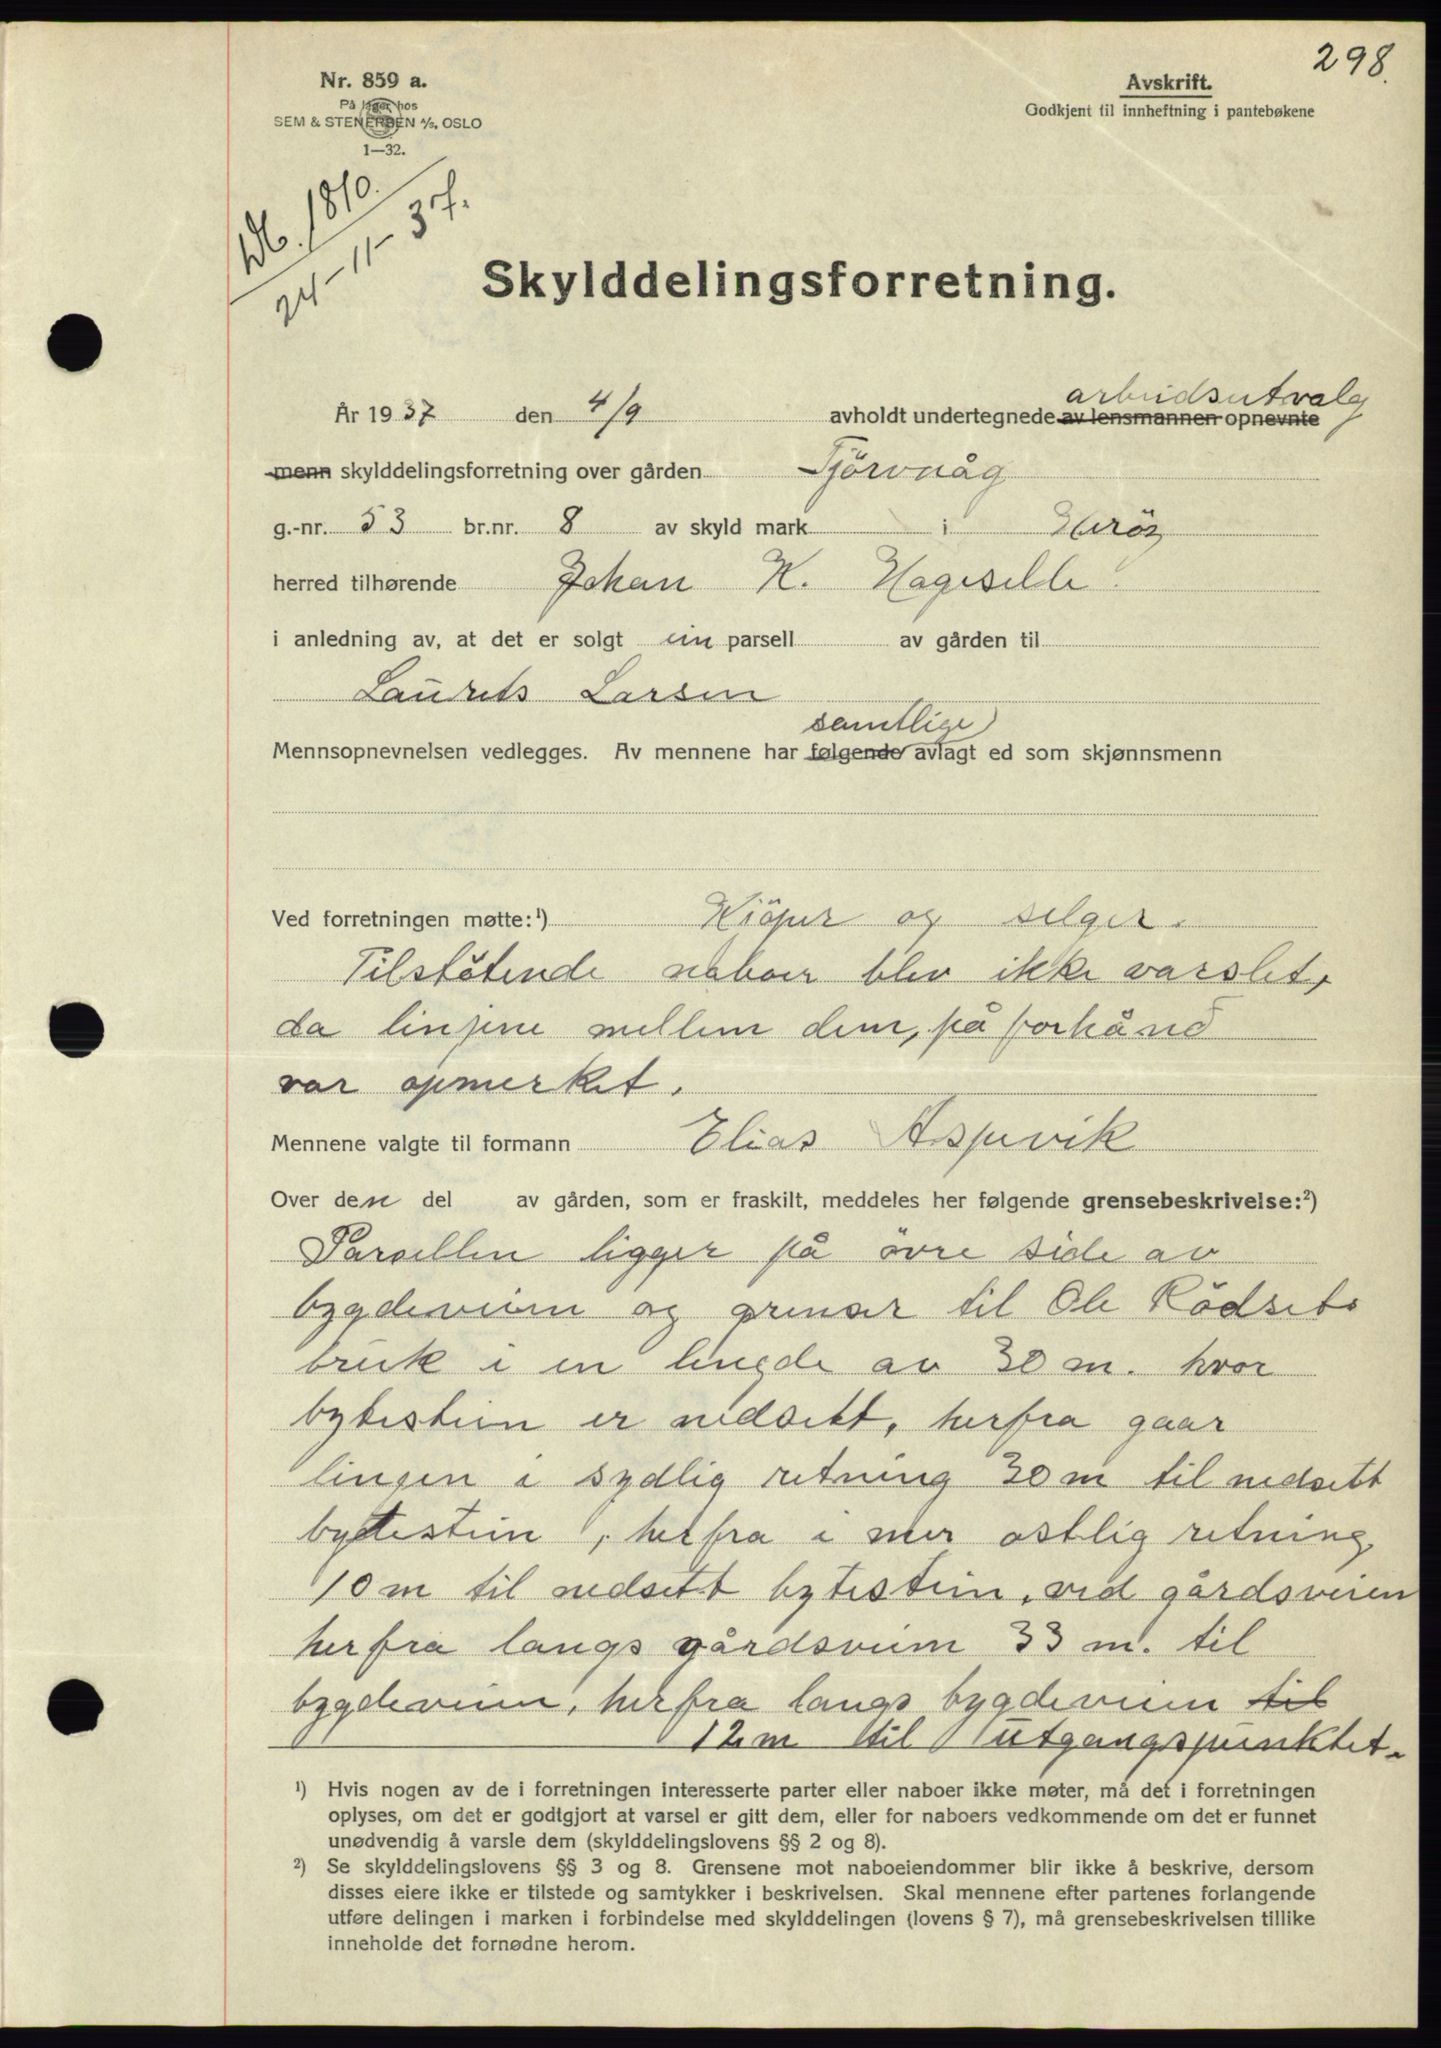 298.
Nr. 859 a.
På lager hos
SEM & STENERSEN A/S, OSLO
1—32.
Avskrift.
Godkjent til innheftning i pantebøkene
Db. 1810.
24-11-37.
Skylddelingsforretning.
arbeidsutvalg
År 1937 den 4/9 avholdt undertegnede av lensmannen opnevnte
menn skylddelingsforretning over gården Tjörvåg
g.-nr. 53 br.nr. 8 av skyld mark i Heröy
herred tilhørende Johan K. Hageselle
i anledning av, at det er solgt ein parsell av gården til
Laurets Larsen
samtlige
Mennsopnevnelsen vedlegges. Av mennene har følgende avlagt ed som skjønnsmenn
Ved forretningen møtte:¹) Kjöper og selger.
Tilstötende naboer blev ikke varslet,
da linjene mellem dem, på forhånd
var opmerket.
Mennene valgte til formann Elias Aspevik
Over den del av gården, som er fraskilt, meddeles her følgende grensebeskrivelse:²)
Parsellen ligger på övre side av
bygdeveien og grenser til Ole Rödsets
bruk i en lengde av 30 m. hvor
bytestein er nedsett, herfra gaar
lingen i sydlig retning 30 m til nedsett
bytestein, herfra i mer ostlig retning
10 m til nedsett bytestein, ved gårdsveien
herfra langs gårdsveien 33 m. til
bygdeveien, herfra langs bygdeveien til
12 m til utgangspunktet.
¹) Hvis nogen av de i forretningen interesserte parter eller naboer ikke møter, må det i forretningen
oplyses, om det er godtgjort at varsel er gitt dem, eller for naboers vedkommende om det er funnet
unødvendig å varsle dem (skylddelingslovens §§ 2 og 8).
²) Se skylddelingslovens §§ 3 og 8. Grensene mot naboeiendommer blir ikke å beskrive, dersom
disses eiere ikke er tilstede og samtykker i beskrivelsen. Skal mennene efter partenes forlangende
utføre delingen i marken i forbindelse med skylddelingen (lovens § 7), må grensebeskrivelsen tillike
inneholde det fornødne herom.